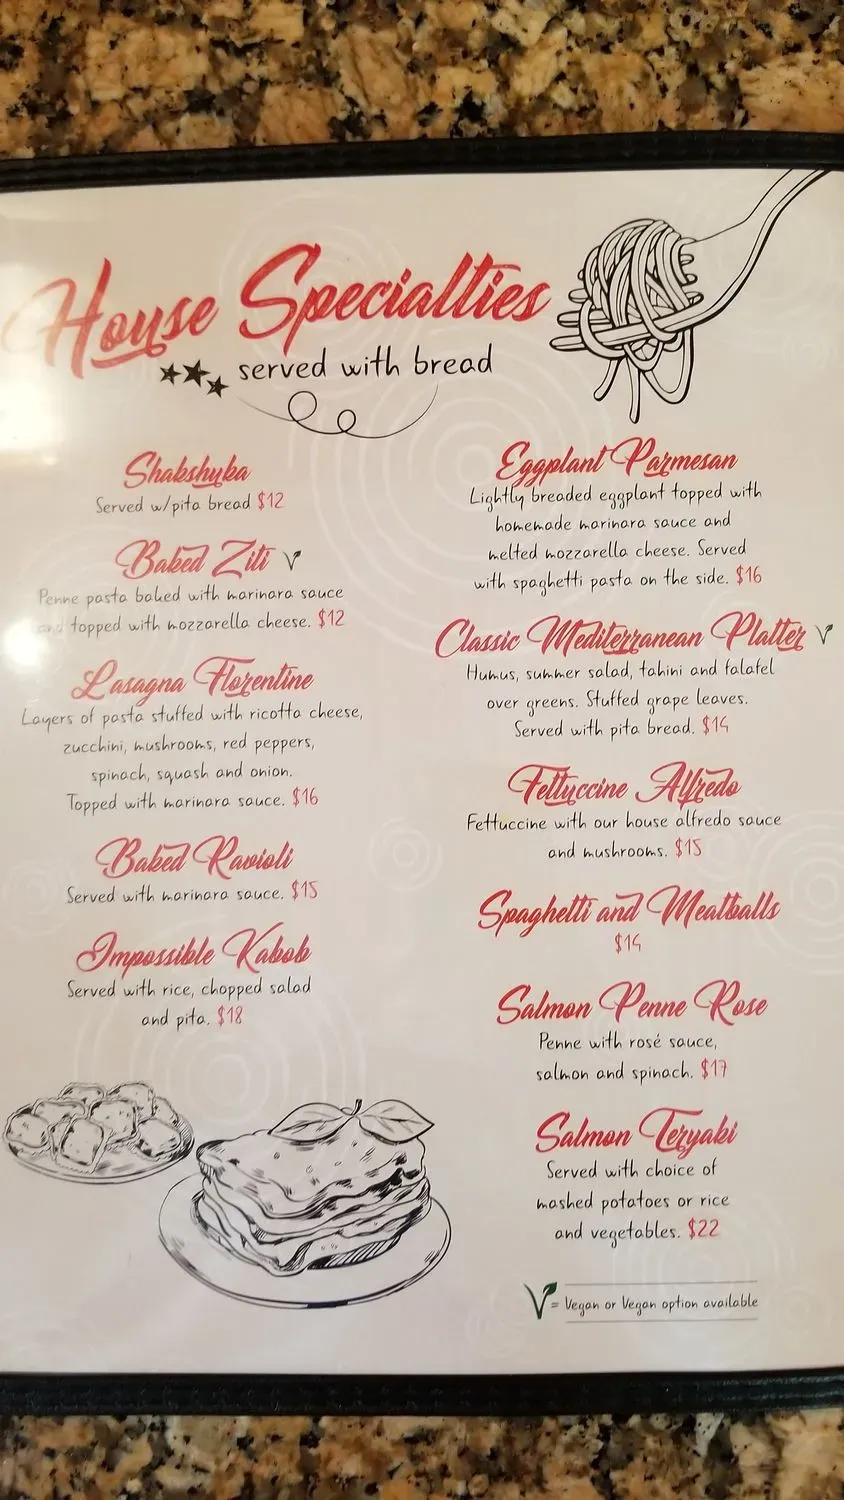 House Specialties
served with bread
Shakshuka
Served w/pita bread $12
Baked Ziti V
Penne pasta baked with marinara sauce
and topped with mozzarella cheese. $12
Lasagna Florentine
Layers of pasta stuffed with ricotta cheese,
zucchini, mushrooms, red peppers,
spinach, squash and onion.
Topped with marinara sauce. $16
Baked Ravioli
Served with marinara sauce. $15
Impossible Kabob
Served with rice, chopped salad
and pita. $18
Eggplant Parmesan
Lightly breaded eggplant topped with
homemade marinara sauce and
melted mozzarella cheese. Served
with spaghetti pasta on the side. $16
Classic Mediterranean Platter V
Humus, summer salad, tahini and falafel
over greens. Stuffed grape leaves.
Served with pita bread. $14
Fettuccine Alfredo
Fettuccine with our house alfredo sauce
and mushrooms. $15
Spaghetti and Meatballs
$14
Salmon Penne Rose
Penne with rosé sauce,
salmon and spinach. $17
Salmon Teryaki
Served with choice of
mashed potatoes or rice
and vegetables. $22
V = Vegan or Vegan option available